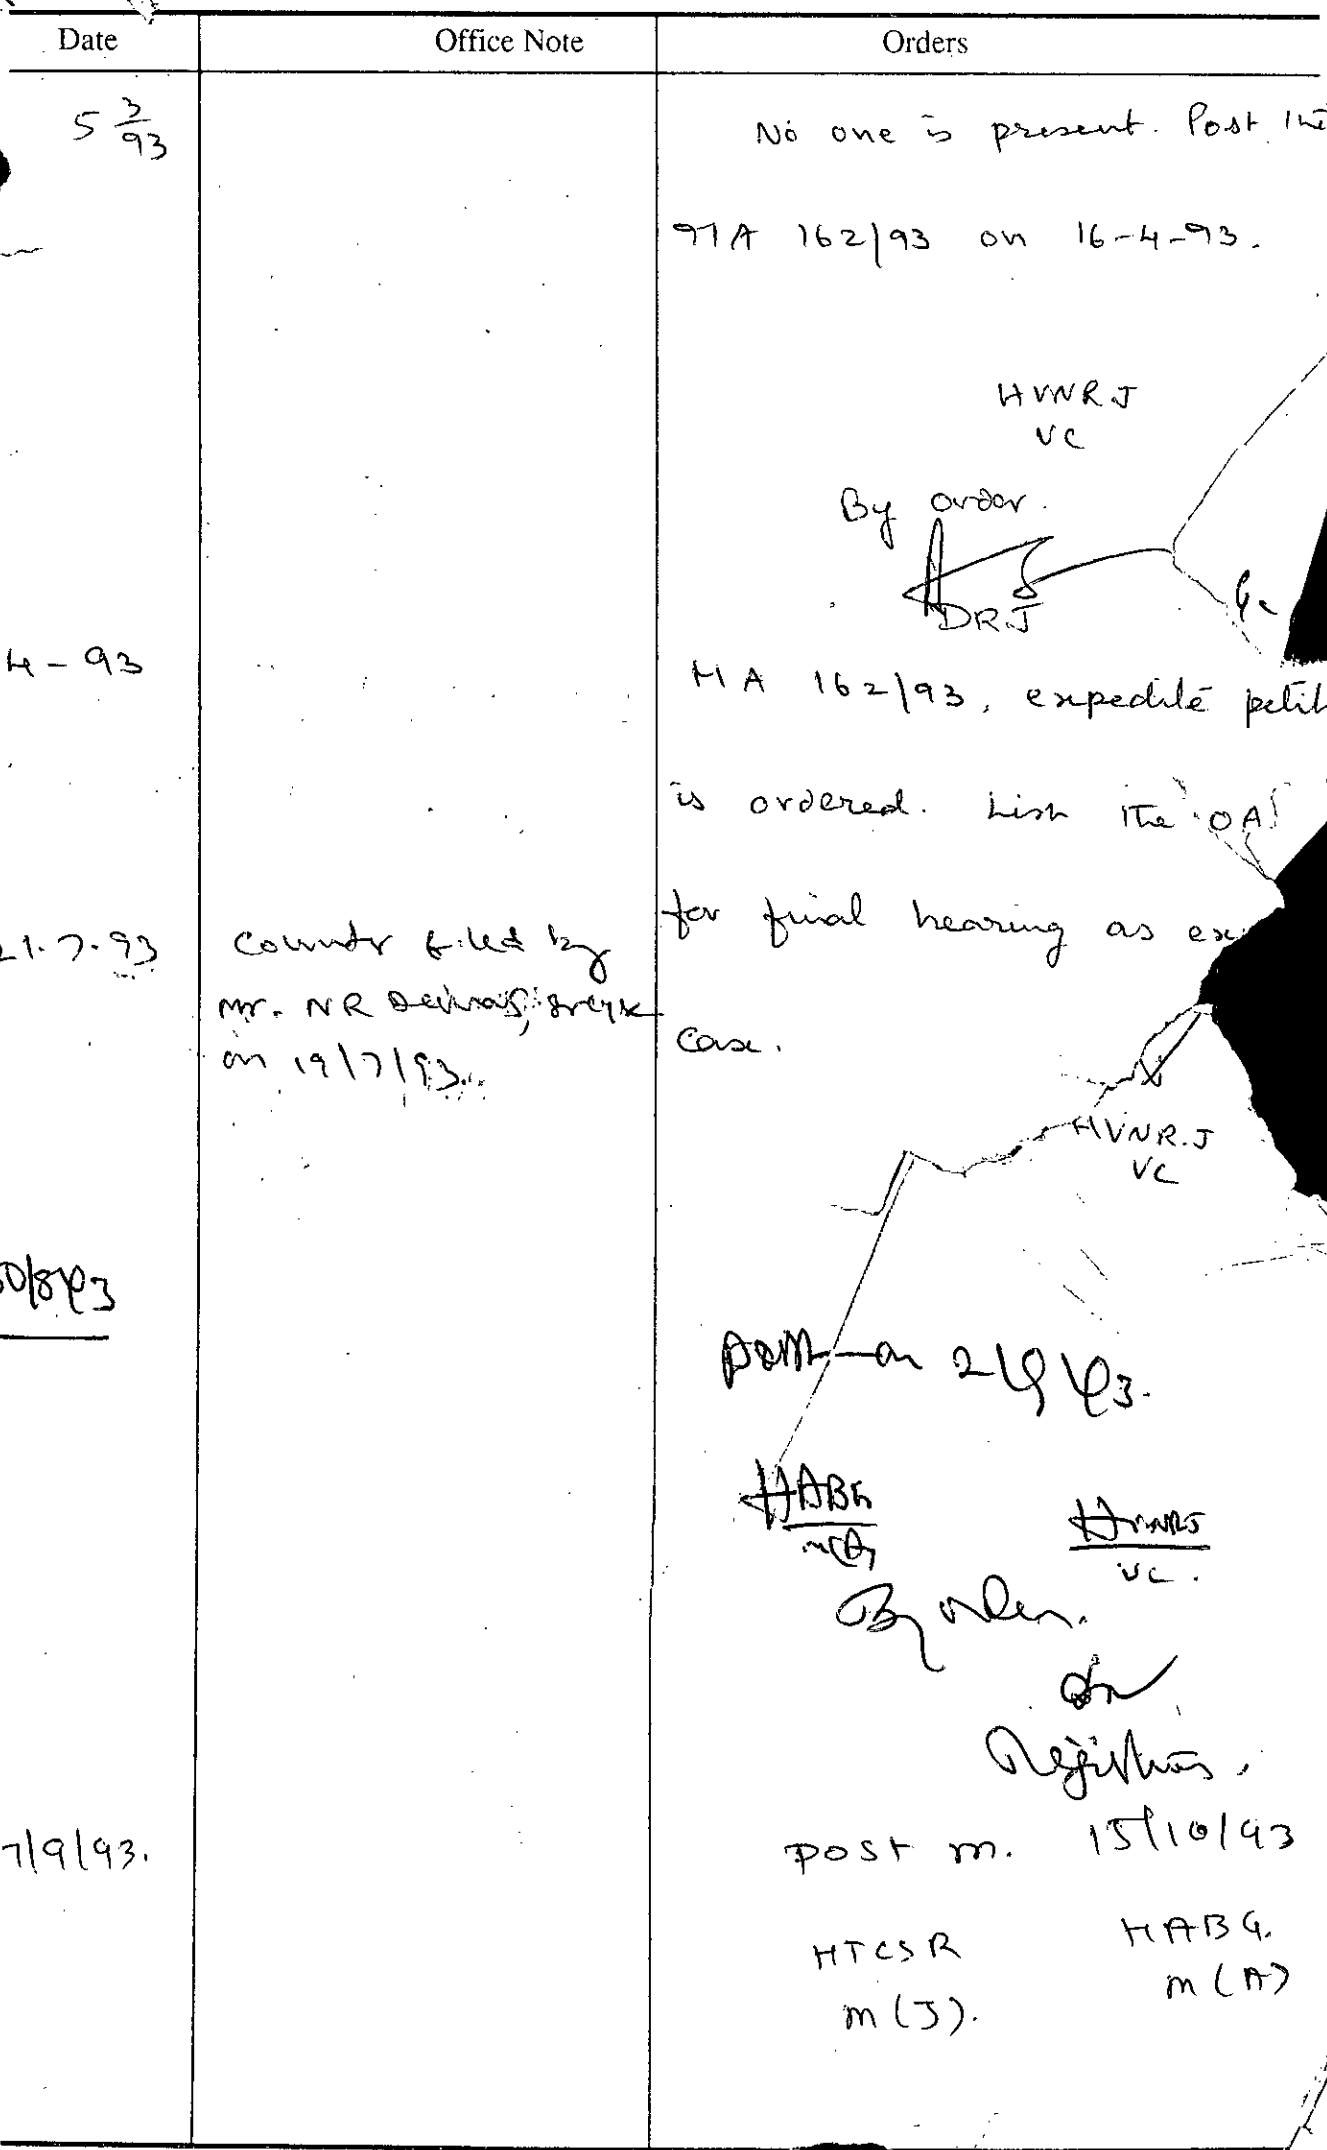 Date Office Note Orders
5 3/93 No one is present. Post
MA 162/93 on 16-4-93.
HVNRJ
VC
By order.
DRJ
4-93 MA 162/93, expedite petit
is ordered. List the OA
for final hearing as ex
21.7.93 Counter filed by
Mr. NR
on 19/7/93.
case.
HVNR.J
VC
30/8/93
Post on
HABG
M(A)
HVNRJ
VC.
By order.
Registrar.
7/9/93. Post on. 15/10/93
HTCSR HABG.
M(J). M(A)